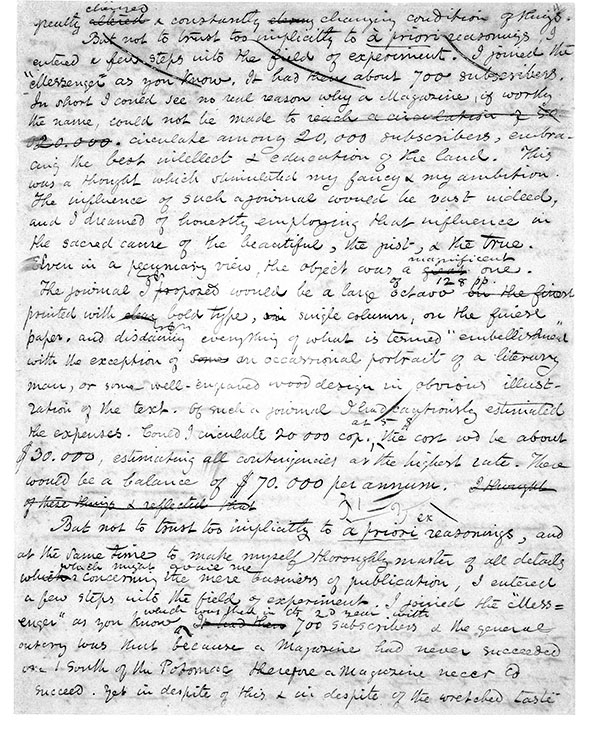 changed
greatly altered & constantly changing condition of things.
But not to trust too implicitly to a priori reasonings I
entered a few steps into the field of experiment. I joined the
"Messenger" as you know. It had then about 700 subscribers.
In short I could see no real reason why a Magazine, if worthy
the name, could not be made to reach a circulation of
20.000. circulate among 20,000 subscribers, embra-
cing the best intellect & education of the land. This
was a thought which stimulated my fancy & my ambition.
The influence of such a journal would be vast indeed,
and I dreamed of honestly employing that influence in
the sacred cause of the beautiful, the just, & the true.
magnificent
Even in a pecuniary view, the object was a great one.
of 128 pp.
The journal I proposed would be a large octavo on the finest
printed with clear bold type, in single column, on the finest
paper. and disdaining everything of what is termed "embellishment"
with the exception of some an occasional portrait of a literary
man, or some well-engraved wood design in obvious illust-
ration of the text. Of such a journal I had cautiously estimated
at 5 $
the expenses. Could I circulate 20 000 cop. the cost wd be about
$30.000, estimating all contingencies at the highest rate. There
would be a balance of $70.000 per annum. I thought
of these things & reflected that
But not to trust too implicitly to a priori reasonings, and
at the same time to make myself thoroughly master of all details
which might avail me
which concerning the mere business of publication, I entered
a few steps into the field of experiment. I joined the "Mess=
which was then in its 2d year with
enger" as you know It had then 700 subscribers & the general
outcry was that because a Magazine had never succeeded
South of the Potomac therefore a Magazine never cd
succeed. Yet in despite of this & in despite of the wretched taste